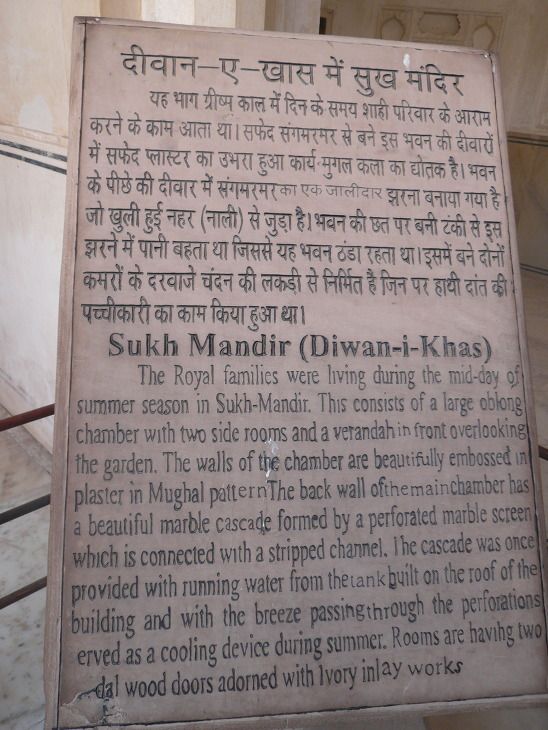 दीवान-ए-खास में सुख मंदिर
यह भाग ग्रीष्म काल में दिन के समय शाही परिवार के आराम
करने के काम आता था। सफेद संगमरमर से बने इस भवन की दीवारों
में सफेद प्लास्टर का उभरा हुआ कार्य मुगल कला का द्योतक है। भवन
के पीछे की दीवार में संगमरमर का एक जालीदार झरना बनाया गया है
जो खुली हुई नहर (नाली) से जुड़ा है। भवन की छत पर बनी टंकी से इस
झरने में पानी बहता था जिससे यह भवन ठंडा रहता था। इसमें बने दोनों
कमरों के दरवाजे चंदन की लकड़ी से निर्मित है जिन पर हाथी दांत की
पच्चीकारी का काम किया हुआ था।
Sukh Mandir (Diwan-i-Khas)
The Royal families were living during the mid-day of
summer season in Sukh-Mandir. This consists of a large oblong
chamber with two side rooms and a verandah in front overlooking
the garden. The walls of the chamber are beautifully embossed in
plaster in Mughal pattern The back wall of the main chamber has
a beautiful marble cascade formed by a perforated marble screen
which is connected with a stripped channel. The cascade was once
provided with running water from the tank built on the roof of the
building and with the breeze passing through the perforations
erved as a cooling device during summer. Rooms are having two
dal wood doors adorned with Ivory inlay works